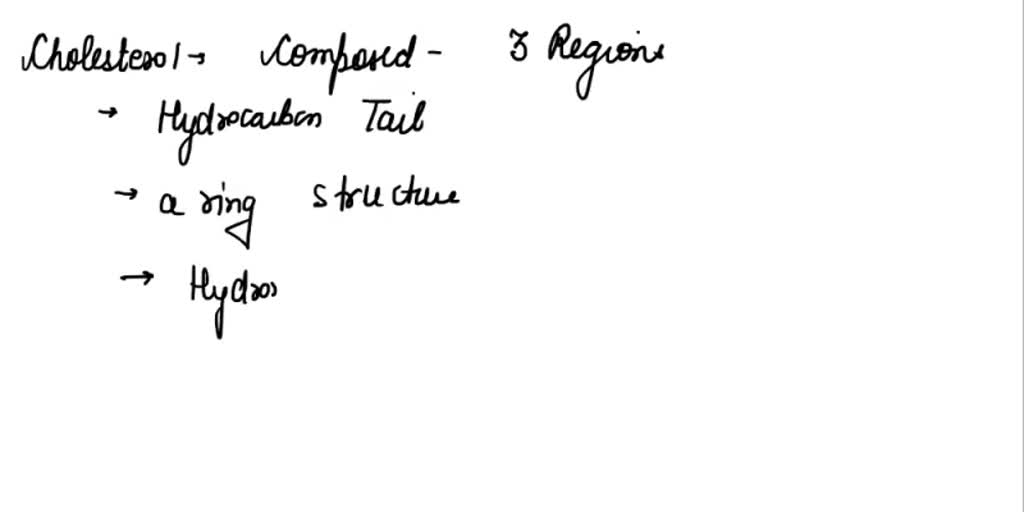 Cholesterol → Composed - 3 Regions
→ Hydrocarbon Tail
→ a ring structure
→ Hydrox